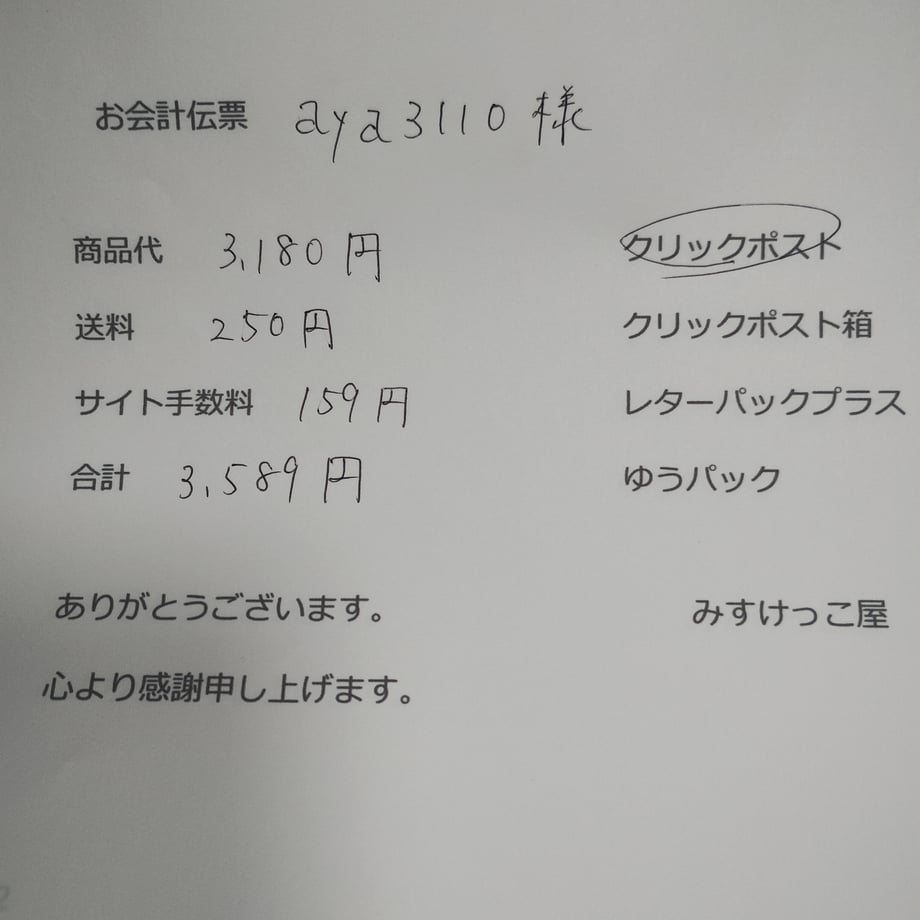 お会計伝票 aya3110 様
商品代 3,180円 クリックポスト
送料 250円 クリックポスト箱
サイト手数料 159円 レターパックプラス
合計 3,589円 ゆうパック
ありがとうございます。 みすけっこ屋
心より感謝申し上げます。